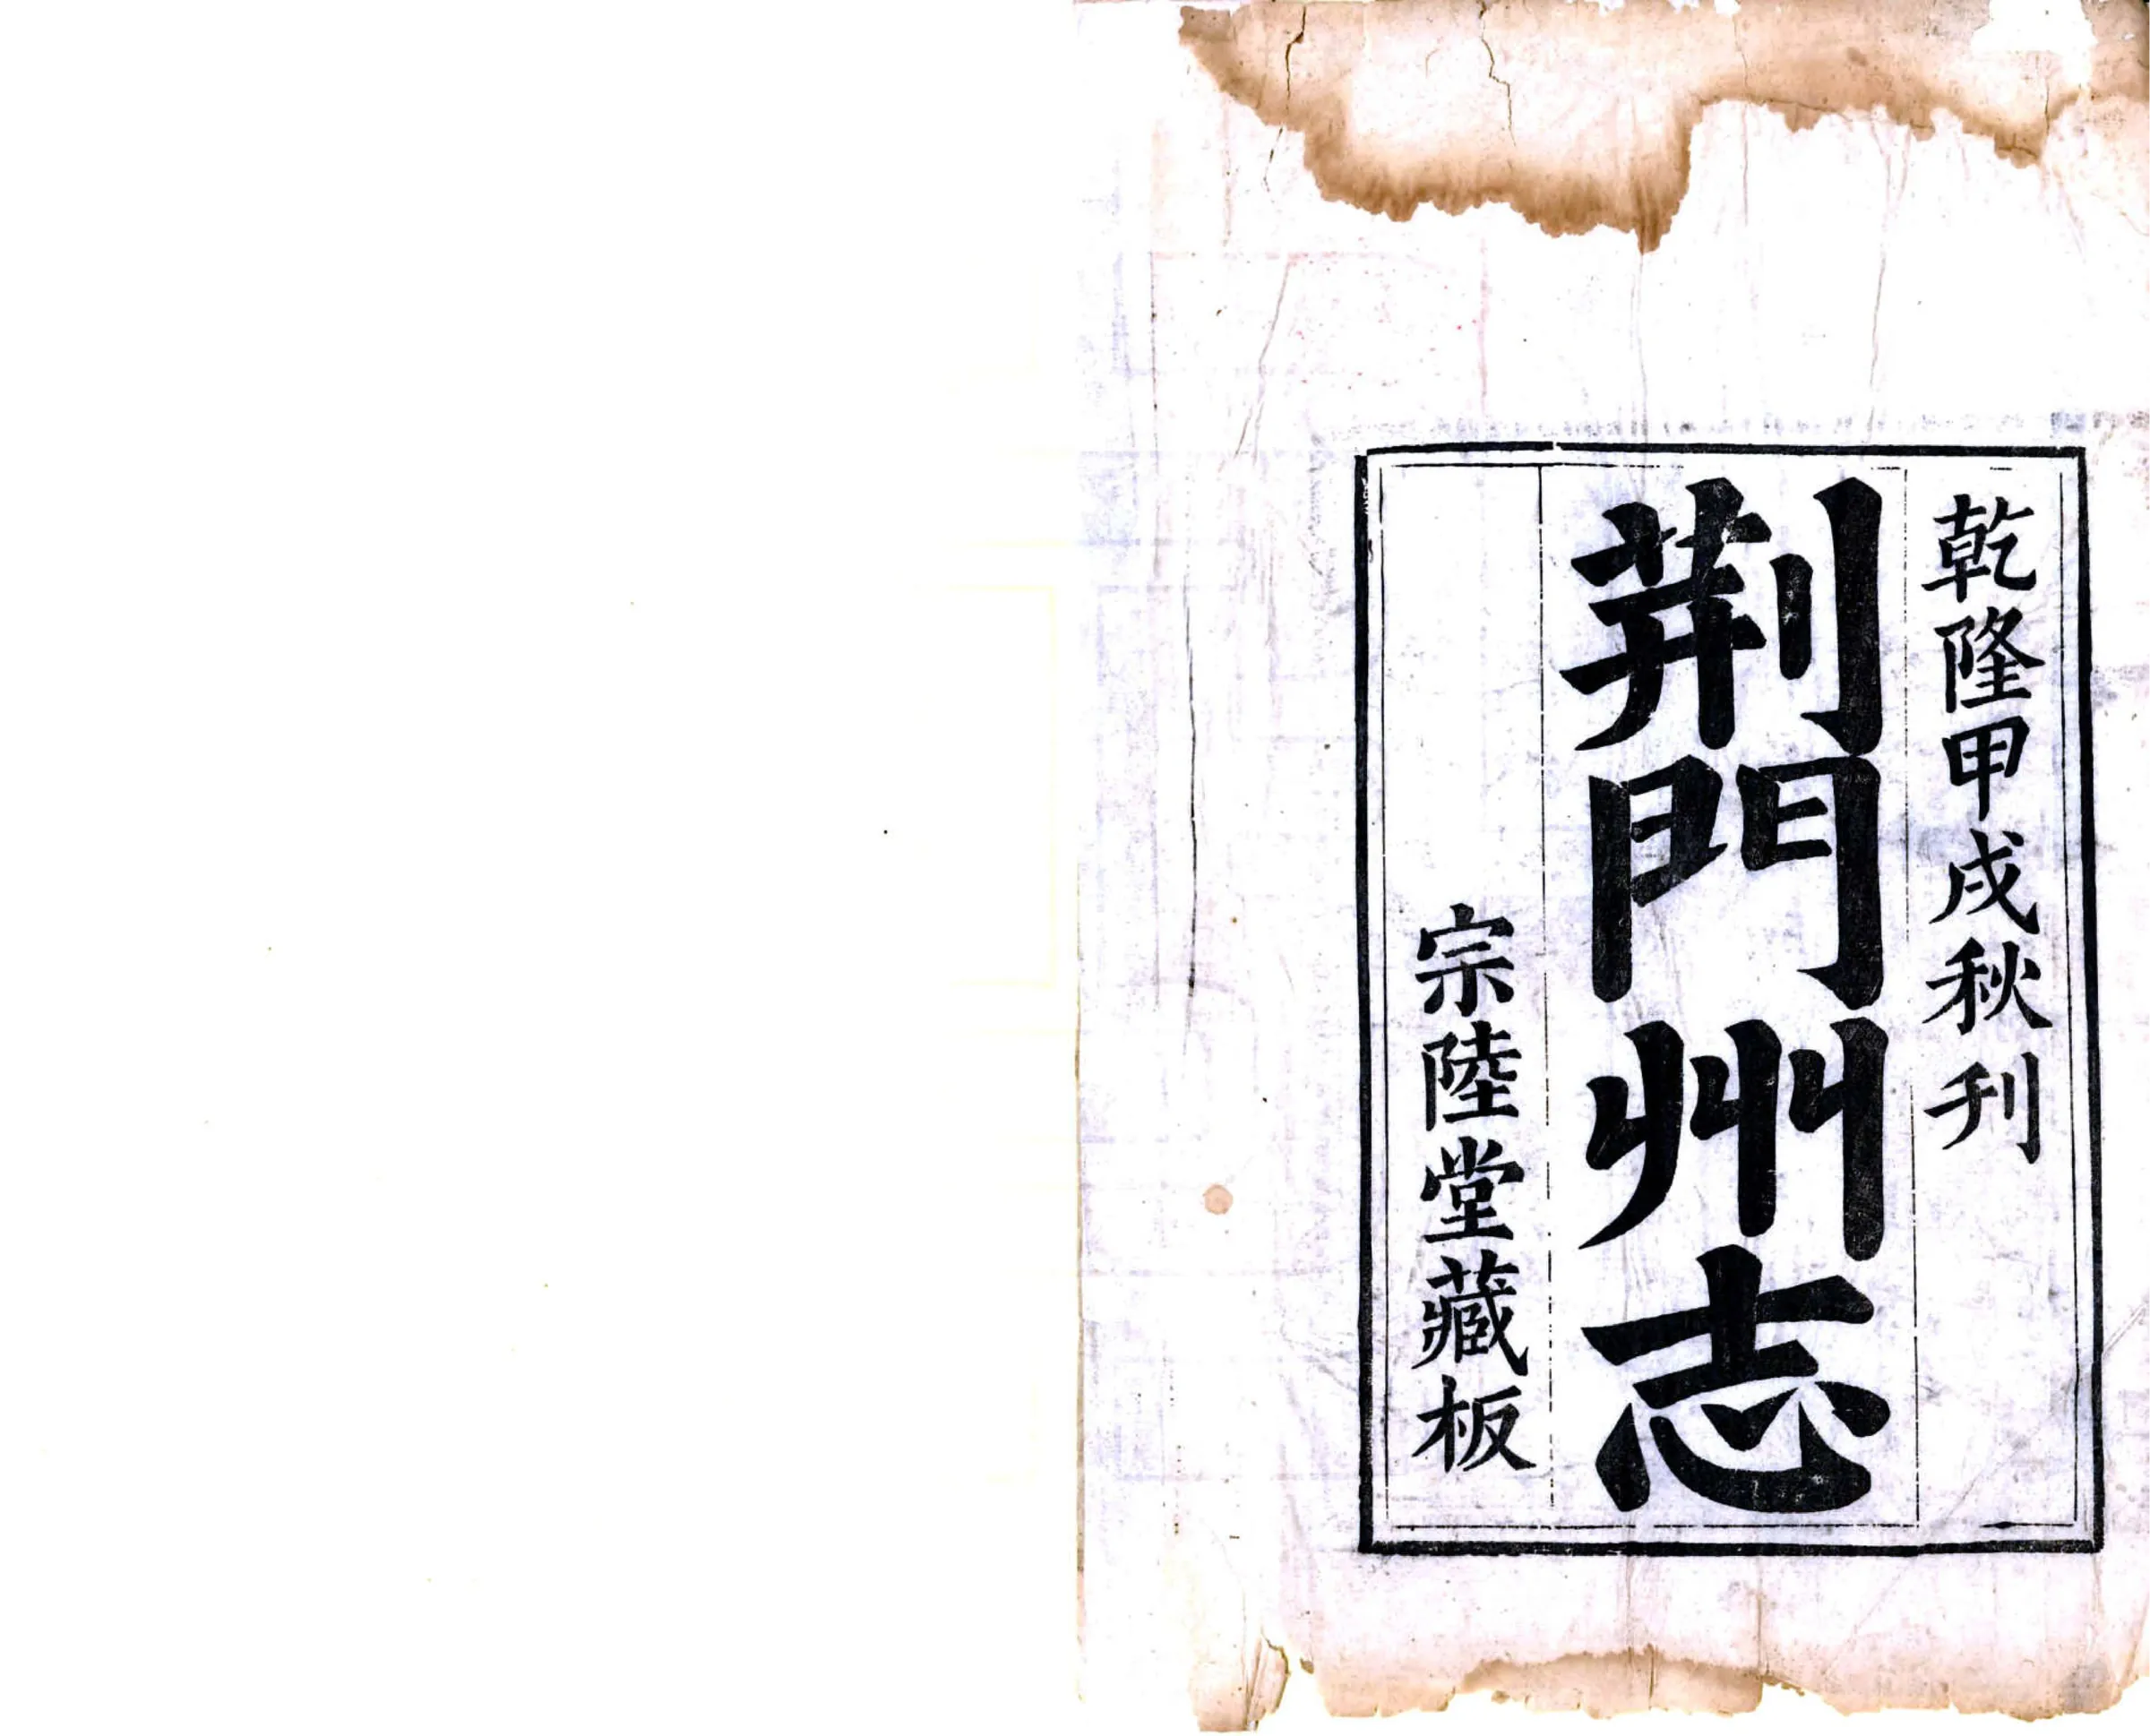 乾隆甲戌秋刋
荆門州志
宗陸堂藏板